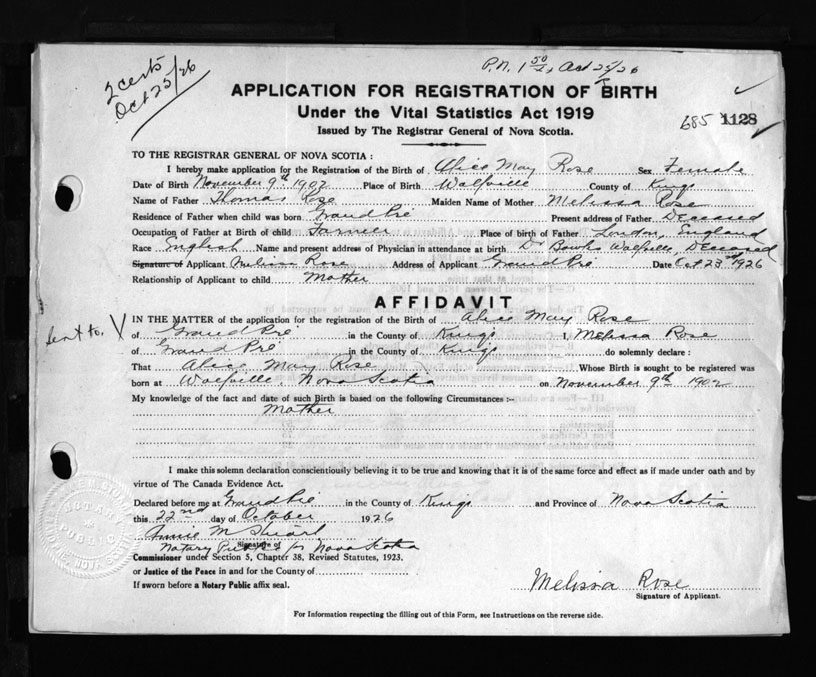 2 certs
Oct 25/26
P.N. 1 50 Oct 25/26
APPLICATION FOR REGISTRATION OF BIRTH
Under the Vital Statistics Act 1919
Issued by The Registrar General of Nova Scotia.
685 1128
TO THE REGISTRAR GENERAL OF NOVA SCOTIA :
I hereby make application for the Registration of the Birth of Alice May Rose Sex Female
Date of Birth November 9th 1902 Place of Birth Wolfville County of Kings
Name of Father Thomas Rose Maiden Name of Mother Melissa Rose
Residence of Father when child was born Grand Pré Present address of Father Deceased
Occupation of Father at Birth of child Farmer Place of birth of Father London, England
Race English Name and present address of Physician in attendance at birth Dr Wolfville, Deceased
Signature of Applicant Melissa Rose Address of Applicant Grand Pré Date Oct 23rd 1926
Relationship of Applicant to child Mother
AFFIDAVIT
Sent to.
IN THE MATTER of the application for the registration of the Birth of Alice May Rose
of Grand Pré in the County of Kings I, Melissa Rose
of Grand Pré in the County of Kings do solemnly declare :
That Alice May Rose Whose Birth is sought to be registered was
born at Wolfville, Nova Scotia on November 9th 1902
My knowledge of the fact and date of such Birth is based on the following Circumstances :-
Mother
I make this solemn declaration conscientiously believing it to be true and knowing that it is of the same force and effect as if made under oath and by
virtue of The Canada Evidence Act.
Declared before me at Grand Pré in the County of Kings and Province of Nova Scotia
this 22nd day of October 1926
Annie M Stuart
Signature of
Notary Public for Nova Scotia
Commissioner under Section 5, Chapter 38, Revised Statutes, 1923.
or Justice of the Peace in and for the County of
If sworn before a Notary Public affix seal.
Melissa Rose
Signature of Applicant.
For Information respecting the filling out of this Form, see Instructions on the reverse side.
NOTARY PUBLIC
NOVA SCOTIA